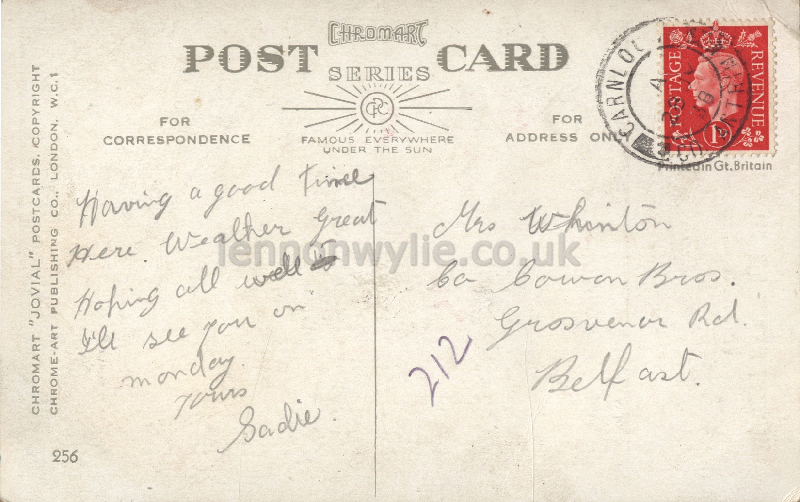 CHROMART
POST CARD
SERIES
CPC
FAMOUS EVERYWHERE
UNDER THE SUN
FOR
CORRESPONDENCE
FOR
ADDRESS ONLY
CARNLOUGH
POSTAGE
REVENUE
1D
Printed in Gt. Britain
Having a good time
Here. Weather Great
Hoping all well
I'll see you on
monday.
Yours
Sadie.
Mrs Whinton
Co Cowan Bros.
Grosvenor Rd.
Belfast.
212
lennonwylie.co.uk
CHROMART "JOVIAL" POSTCARDS. COPYRIGHT
CHROME-ART PUBLISHING CO., LONDON, W.C.1
256